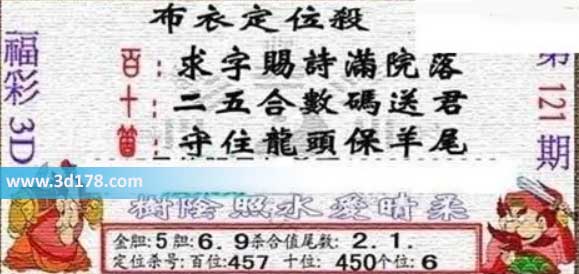 布衣定位殺
福彩3D
第121期
百：求字賜詩滿院落
十：二五合數碼送君
個：守住龍頭保羊尾
www.3d178.com
樹陰照水愛晴柔
金胆:5胆:6.9杀合值尾数:2.1.
定位杀号:百位:457 十位:450个位:6